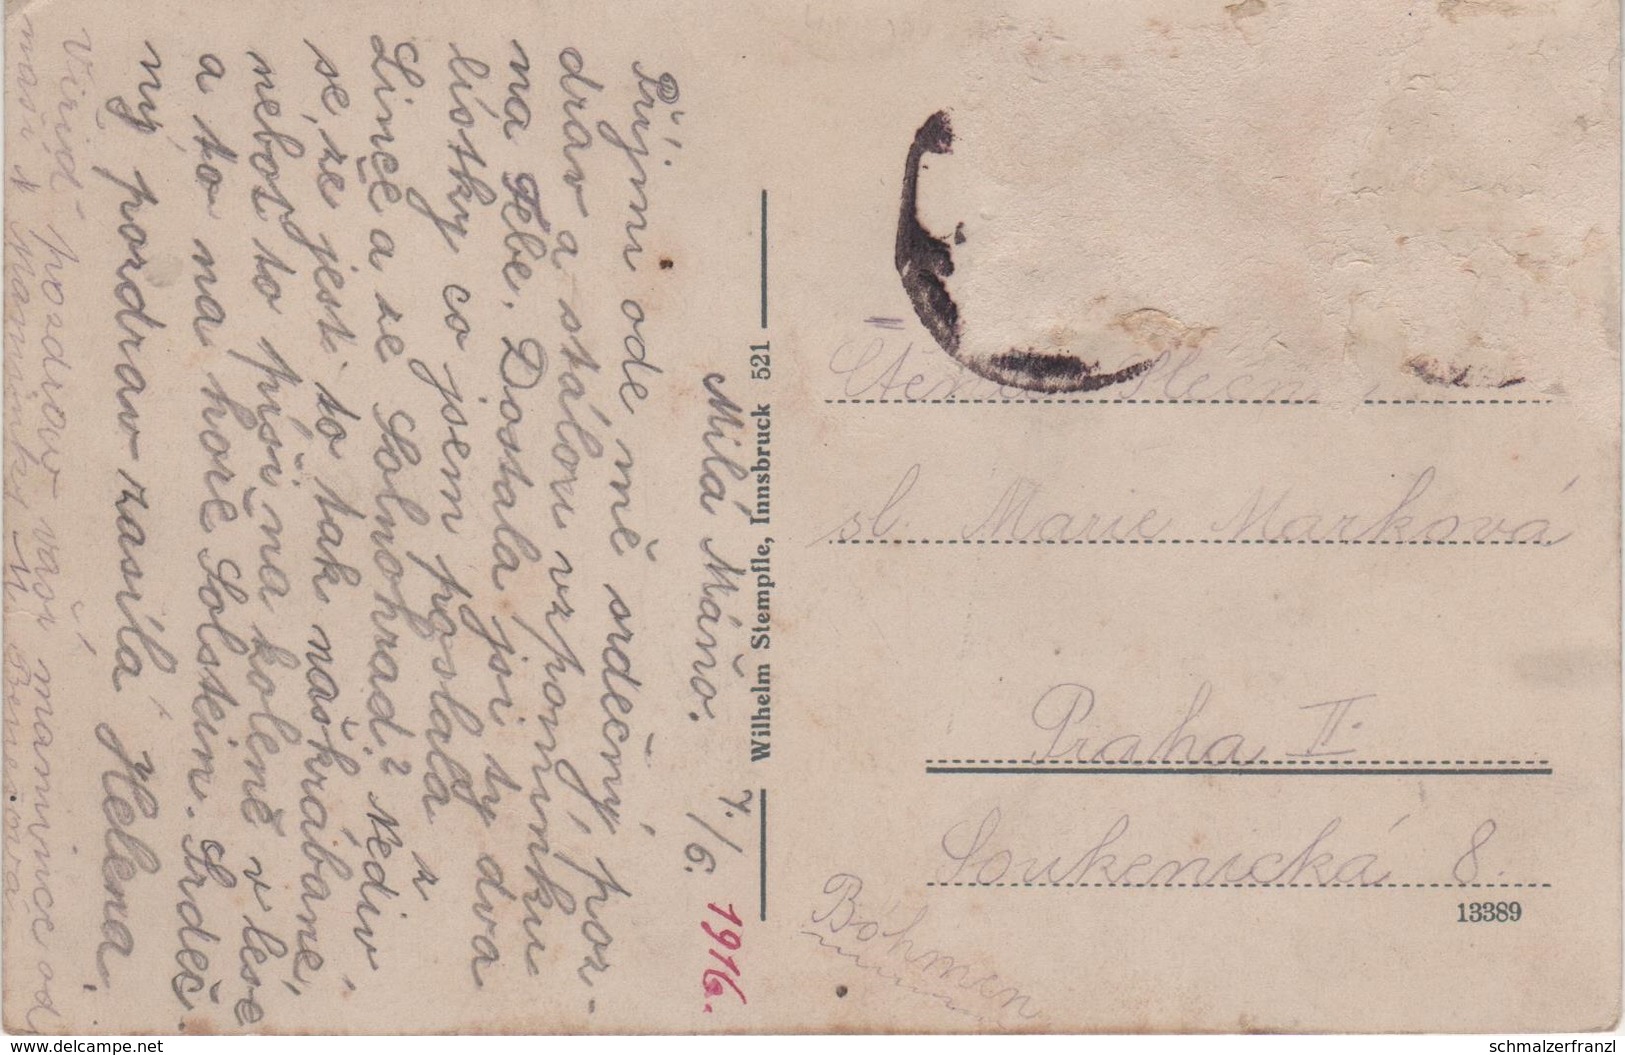 Milá Máňo. 7./6. 1916.
Přijmi ode mě srdečný poz-
drav a stálou vzpomínku
na Tebe. Dostala jsi ty dva
lístky co jsem poslala z
Lince a ze Solnohrad? Nediv
se, že jest to tak naškrábané,
neboť to píši na koleně v lese
a to na hoře Solstein. Srdeč-
ný pozdrav zasílá Helena.
pozdrav vaší mamince od
naší maminky M Benešová
Wilhelm Stempfle, Innsbruck 521
Ctěná Slečna
sl. Marie Marková
Praha II.
Soukenická 8.
13389
Böhmen
www.delcampe.net
schmalzerfranzl